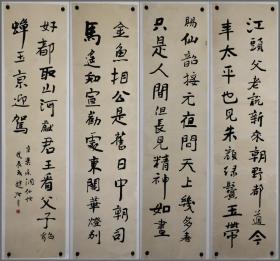 江頭父老說新來朝野都道今
年太平也見朱顏綠鬢玉帶
賜仙韶接元夜問天上幾多春
只是人間但長見精神如畫
金魚相公是舊日中朝司
馬遥知宣勸處東閣華燈別
好都取山河獻君王看父子貂
蟬玉京迎駕
辛棄疾洞仙歌